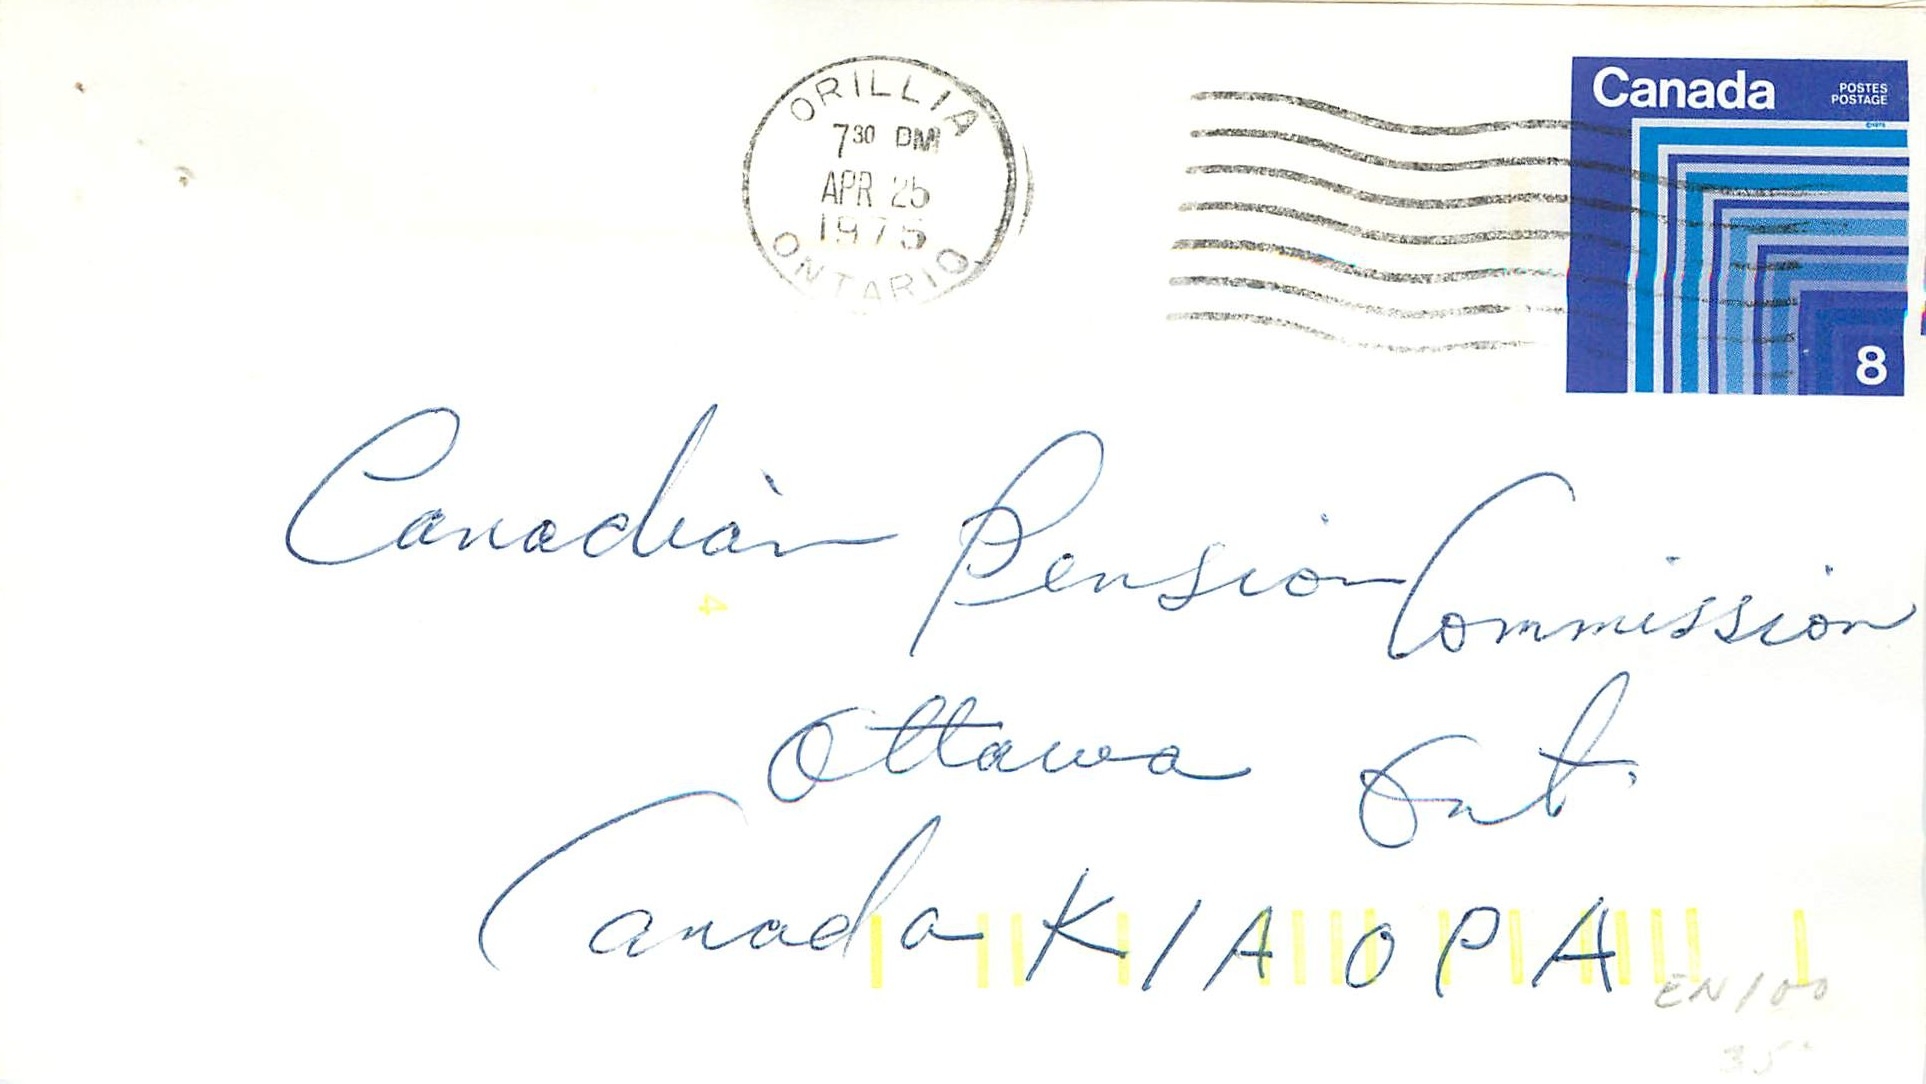 ORILLIA
7 30 PM
APR 25
1975
ONTARIO
Canada
POSTES
POSTAGE
8
Canadian Pension Commission
4
Ottawa Ont.
Canada K1A 0PA
EN100
35